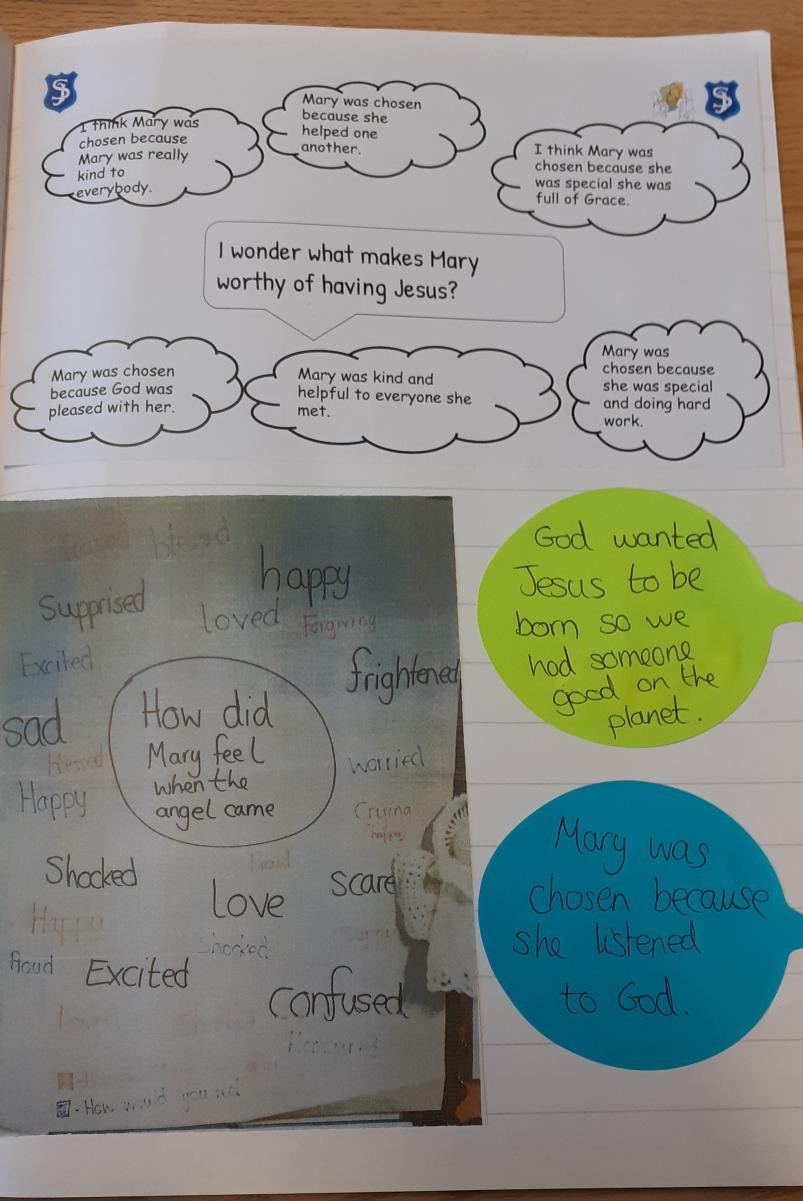 I think Mary was
chosen because
Mary was really
kind to
everybody.
Mary was chosen
because she
helped one
another.
I think Mary was
chosen because she
was special she was
full of Grace.
I wonder what makes Mary
worthy of having Jesus?
Mary was chosen
because God was
pleased with her.
Mary was kind and
helpful to everyone she
met.
Mary was
chosen because
she was special
and doing hard
work.
blessed
happy
Supprised
loved
Forgiving
Excited
frightened
sad
How did
Mary feel
when the
angel came
blessed
worried
Happy
Crying
happy
Shocked
Proud
scare
love
Happy
Shocked
Proud
Excited
confused
Honoured
- How would you
God wanted
Jesus to be
born so we
had someone
good on the
planet.
Mary was
chosen because
she listened
to God.